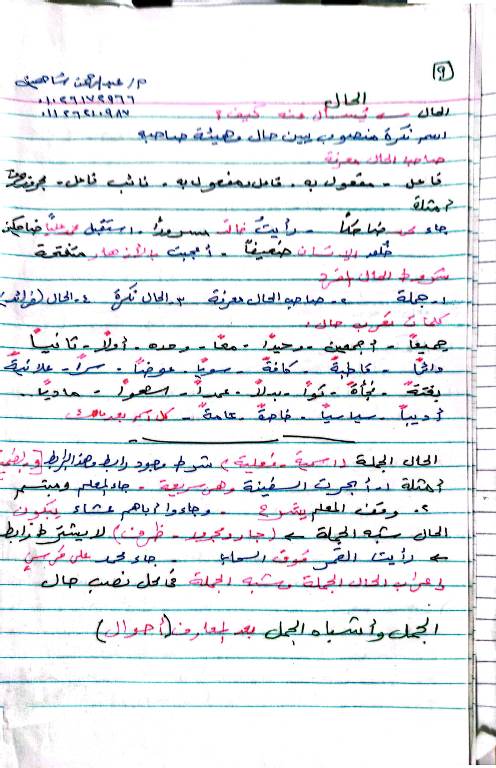 ٩
م/ عبدالرحمن شاهين
٠١٠٢٦١٧٢٩٦٦
الحال
الحال ← يُسأل عنه كيف؟
اسم نكرة منصوب يبين حال وهيئة صاحبه
صاحب الحال معرفة
فاعل - مفعول به - فاعل ومفعول به - نائب فاعل
أمثلة
جاء محمد ضاحكاً - رأيت خالد مسروراً - استقبل محمد علياً ضاحكين
خلق الإنسان ضعيفاً - أعجبت بالأزهار متفتحة
شروط الحال المفرد
١- جملة ٢- صاحب الحال معرفة ٣- الحال نكرة ٤- الحال
كلمات تعرب حال:
جميعاً - أجمعين - وحيداً - معاً - وحده - أولاً - ثانياً
دائماً - قاطبة - كافة - سوياً - عوضاً - سراً - علانية
بغتة - فجأة - توا - بدلاً - عمداً - اسهموا - مادياً
أدبياً - سياسياً - خاصة - عامة - كل اسم بعد مالك
الحال الجملة (اسمية - فعلية) شرط وجود رابط وهذا الرابط
أمثلة ١- أبحرت السفينة وهى سريعة - جاء المعلم ومبتسم
٢- وقف المعلم يشرح - وجاءوا أباهم عشاء يبكون
الحال شبه الجملة ← (جار ومجرور - ظرف) لا يشترط رابط
← رأيت القمر فوق السحاب جاء محمد على فرسي
إعراب الحال الجملة وشبه الجملة فى محل نصب حال
الجمل وأشباه الجمل بعد المعارف (أحوال)